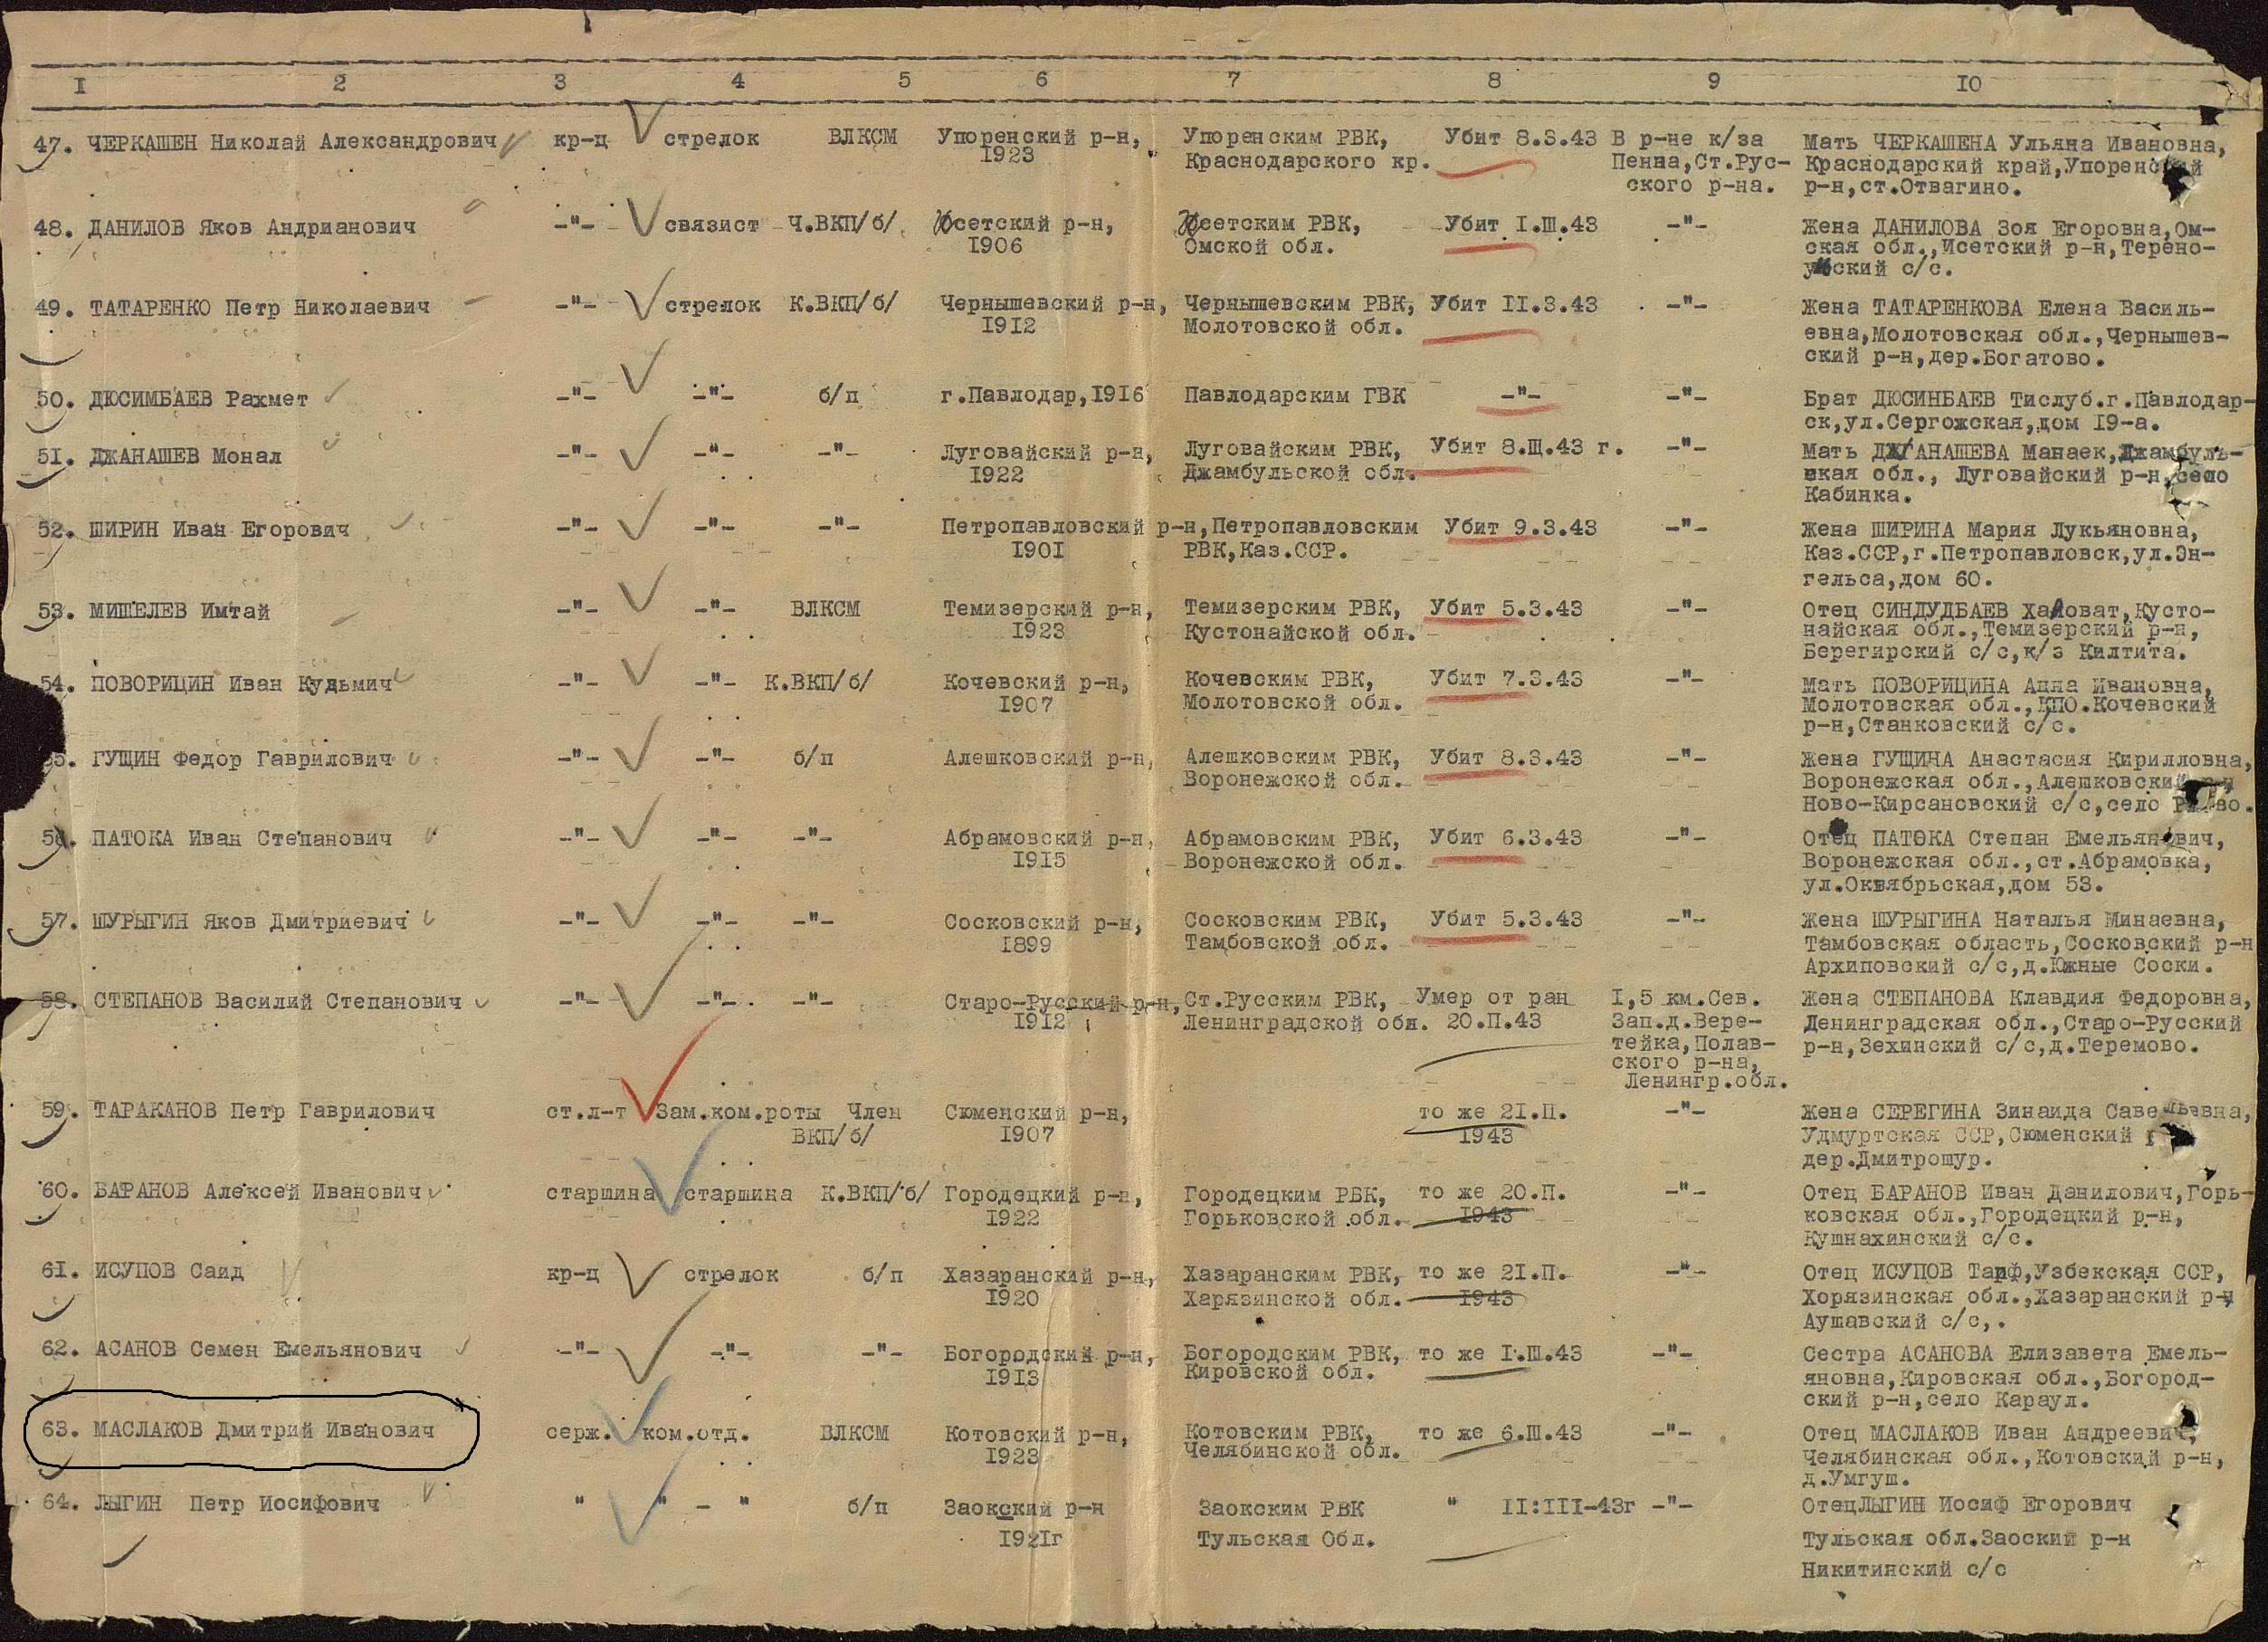 I 2 3 4 5 6 7 8 9 IO
47. ЧЕРКАШЕН Николай Александрович кр-ц стрелок ВЛКСМ Упоренский р-н, Упоренским РВК, Убит 8.3.43 В р-не к/за Мать ЧЕРКАШЕНА Ульяна Ивановна,
I923 Краснодарского кр. Пенна,Ст.Рус- Краснодарский край,Упоренский
ского р-на. р-н,ст.Отвагино.
48. ДАНИЛОВ Яков Андрианович -"- связист Ч.ВКП/б/, Исетский р-н, Исетским РВК, Убит I.Ш.43 -"- Жена ДАНИЛОВА Зоя Егоровна,Ом-
I906 Омской обл. ская обл.,Исетский р-н,Терено-
ский с/с.
49. ТАТАРЕНКО Петр Николаевич -"- стрелок К.ВКП/б/ Чернышевский р-н, Чернышевским РВК, Убит II.3.43 -"- Жена ТАТАРЕНКОВА Елена Василь-
I9I2 Молотовской обл. евна,Молотовская обл.,Чернышев-
ский р-н,дер.Богатово.
50. ДЮСИМБАЕВ Рахмет -"- -"- б/п г.Павлодар,I9I6 Павлодарским ГВК -"- -"- Брат ДЮСИНБАЕВ Тислуб.г.Павлодар-
ск,ул.Сергожская,дом I9-а.
51. ДЖАНАШЕВ Монал -"- -"- -"- Луговайский р-н, Луговайским РВК, Убит 8.Ш.43 г. -"- Мать ДЖАНАШЕВА Манаек,Джамбуль-
I922 Джамбульской обл. ская обл., Луговайский р-н,село
Кабинка.
52. ШИРИН Иван Егорович -"- -"- -"- Петропавловский р-н,Петропавловским Убит 9.3.43 -"- Жена ШИРИНА Мария Лукьяновна,
I90I РВК,Каз.ССР. Каз.ССР,г.Петропавловск,ул.Эн-
гельса,дом 60.
53. МИШЕЛЕВ Имтай -"- -"- ВЛКСМ Темизерский р-н, Темизерским РВК, Убит 5.3.43 -"- Отец СИНДУДБАЕВ Халоват,Кусто-
I923 Кустонайской обл. найская обл.,Темизерский р-н,
Берегирский с/с,к/з Килтита.
54. ПОВОРИЦИН Иван Кудьмич -"- -"- К.ВКП/б/ Кочевский р-н, Кочевским РВК, Убит 7.3.43 -"- Мать ПОВОРИЦИНА Анна Ивановна,
I907 Молотовской обл. Молотовская обл.,КПО.Кочевский
р-н,Станковский с/с.
55. ГУЩИН Федор Гаврилович -"- -"- б/п Алешковский р-н, Алешковским РВК, Убит 8.3.43 -"- Жена ГУЩИНА Анастасия Кирилловна,
Воронежской обл. Воронежская обл.,Алешковский р-н
Ново-Кирсановский с/с,село
56. ПАТОКА Иван Степанович -"- -"- -"- Абрамовский р-н, Абрамовским РВК, Убит 6.3.43 -"- Отец ПАТОКА Степан Емельянович,
I9I5 Воронежской обл. Воронежская обл.,ст.Абрамовка,
ул.Октябрьская,дом 53.
57. ШУРЫГИН Яков Дмитриевич -"- -"- -"- Сосковский р-н, Сосковским РВК, Убит 5.3.43 -"- Жена ШУРЫГИНА Наталья Минаевна,
I899 Тамбовской обл. Тамбовская область,Сосковский р-н
Архиповский с/с,д.Южные Соски.
58. СТЕПАНОВ Василий Степанович -"- -"- -"- Старо-Русский р-н, Ст.Русским РВК, Умер от ран I,5 км.Сев. Жена СТЕПАНОВА Клавдия Федоровна,
I9I2 Ленинградской обл. 20.П.43 Зап.д.Вере- Ленинградская обл.,Старо-Русский
тейка,Полав- р-н,Зехинский с/с,д.Теремово.
ского р-на,
Ленингр.обл.
59. ТАРАКАНОВ Петр Гаврилович ст.л-т Зам.ком.роты Член Сюменский р-н, то же 2I.П. -"- Жена СЕРЕГИНА Зинаида Савельевна,
ВКП/б/ I907 I943 Удмуртская ССР,Сюменский
дер.Дмитрошур.
60. БАРАНОВ Алексей Иванович старшина старшина К.ВКП/б/ Городецкий р-н, Городецким РВК, то же 20.П. -"- Отец БАРАНОВ Иван Данилович,Горь-
I922 Горьковской обл. I943 ковская обл.,Городецкий р-н,
Кушнахинский с/с.
61. ИСУПОВ Саид кр-ц стрелок б/п Хазаранский р-н, Хазаранским РВК, то же 2I.П. -"- Отец ИСУПОВ Таиф,Узбекская ССР,
I920 Харязинской обл. I943 Хорязинская обл.,Хазаранский р-н
Аушавский с/с,.
62. АСАНОВ Семен Емельянович -"- -"- -"- Богородский р-н, Богородским РВК, то же I.Ш.43 -"- Сестра АСАНОВА Елизавета Емель-
I9I3 Кировской обл. яновна,Кировская обл.,Богород-
ский р-н,село Караул.
63. МАСЛАКОВ Дмитрий Иванович серж. ком.отд. ВЛКСМ Котовский р-н, Котовским РВК, то же 6.Ш.43 -"- Отец МАСЛАКОВ Иван Андреевич,
I923 Челябинской обл. Челябинская обл.,Котовский р-н,
д.Умгуш.
64. ЛЫГИН Петр Иосифович " " - " б/п Заокский р-н Заокским РВК " II:III-43г -"- ОтецЛЫГИН Иосиф Егорович
I92Iг Тульская Обл. Тульская обл.Заоский р-н
Никитинский с/с